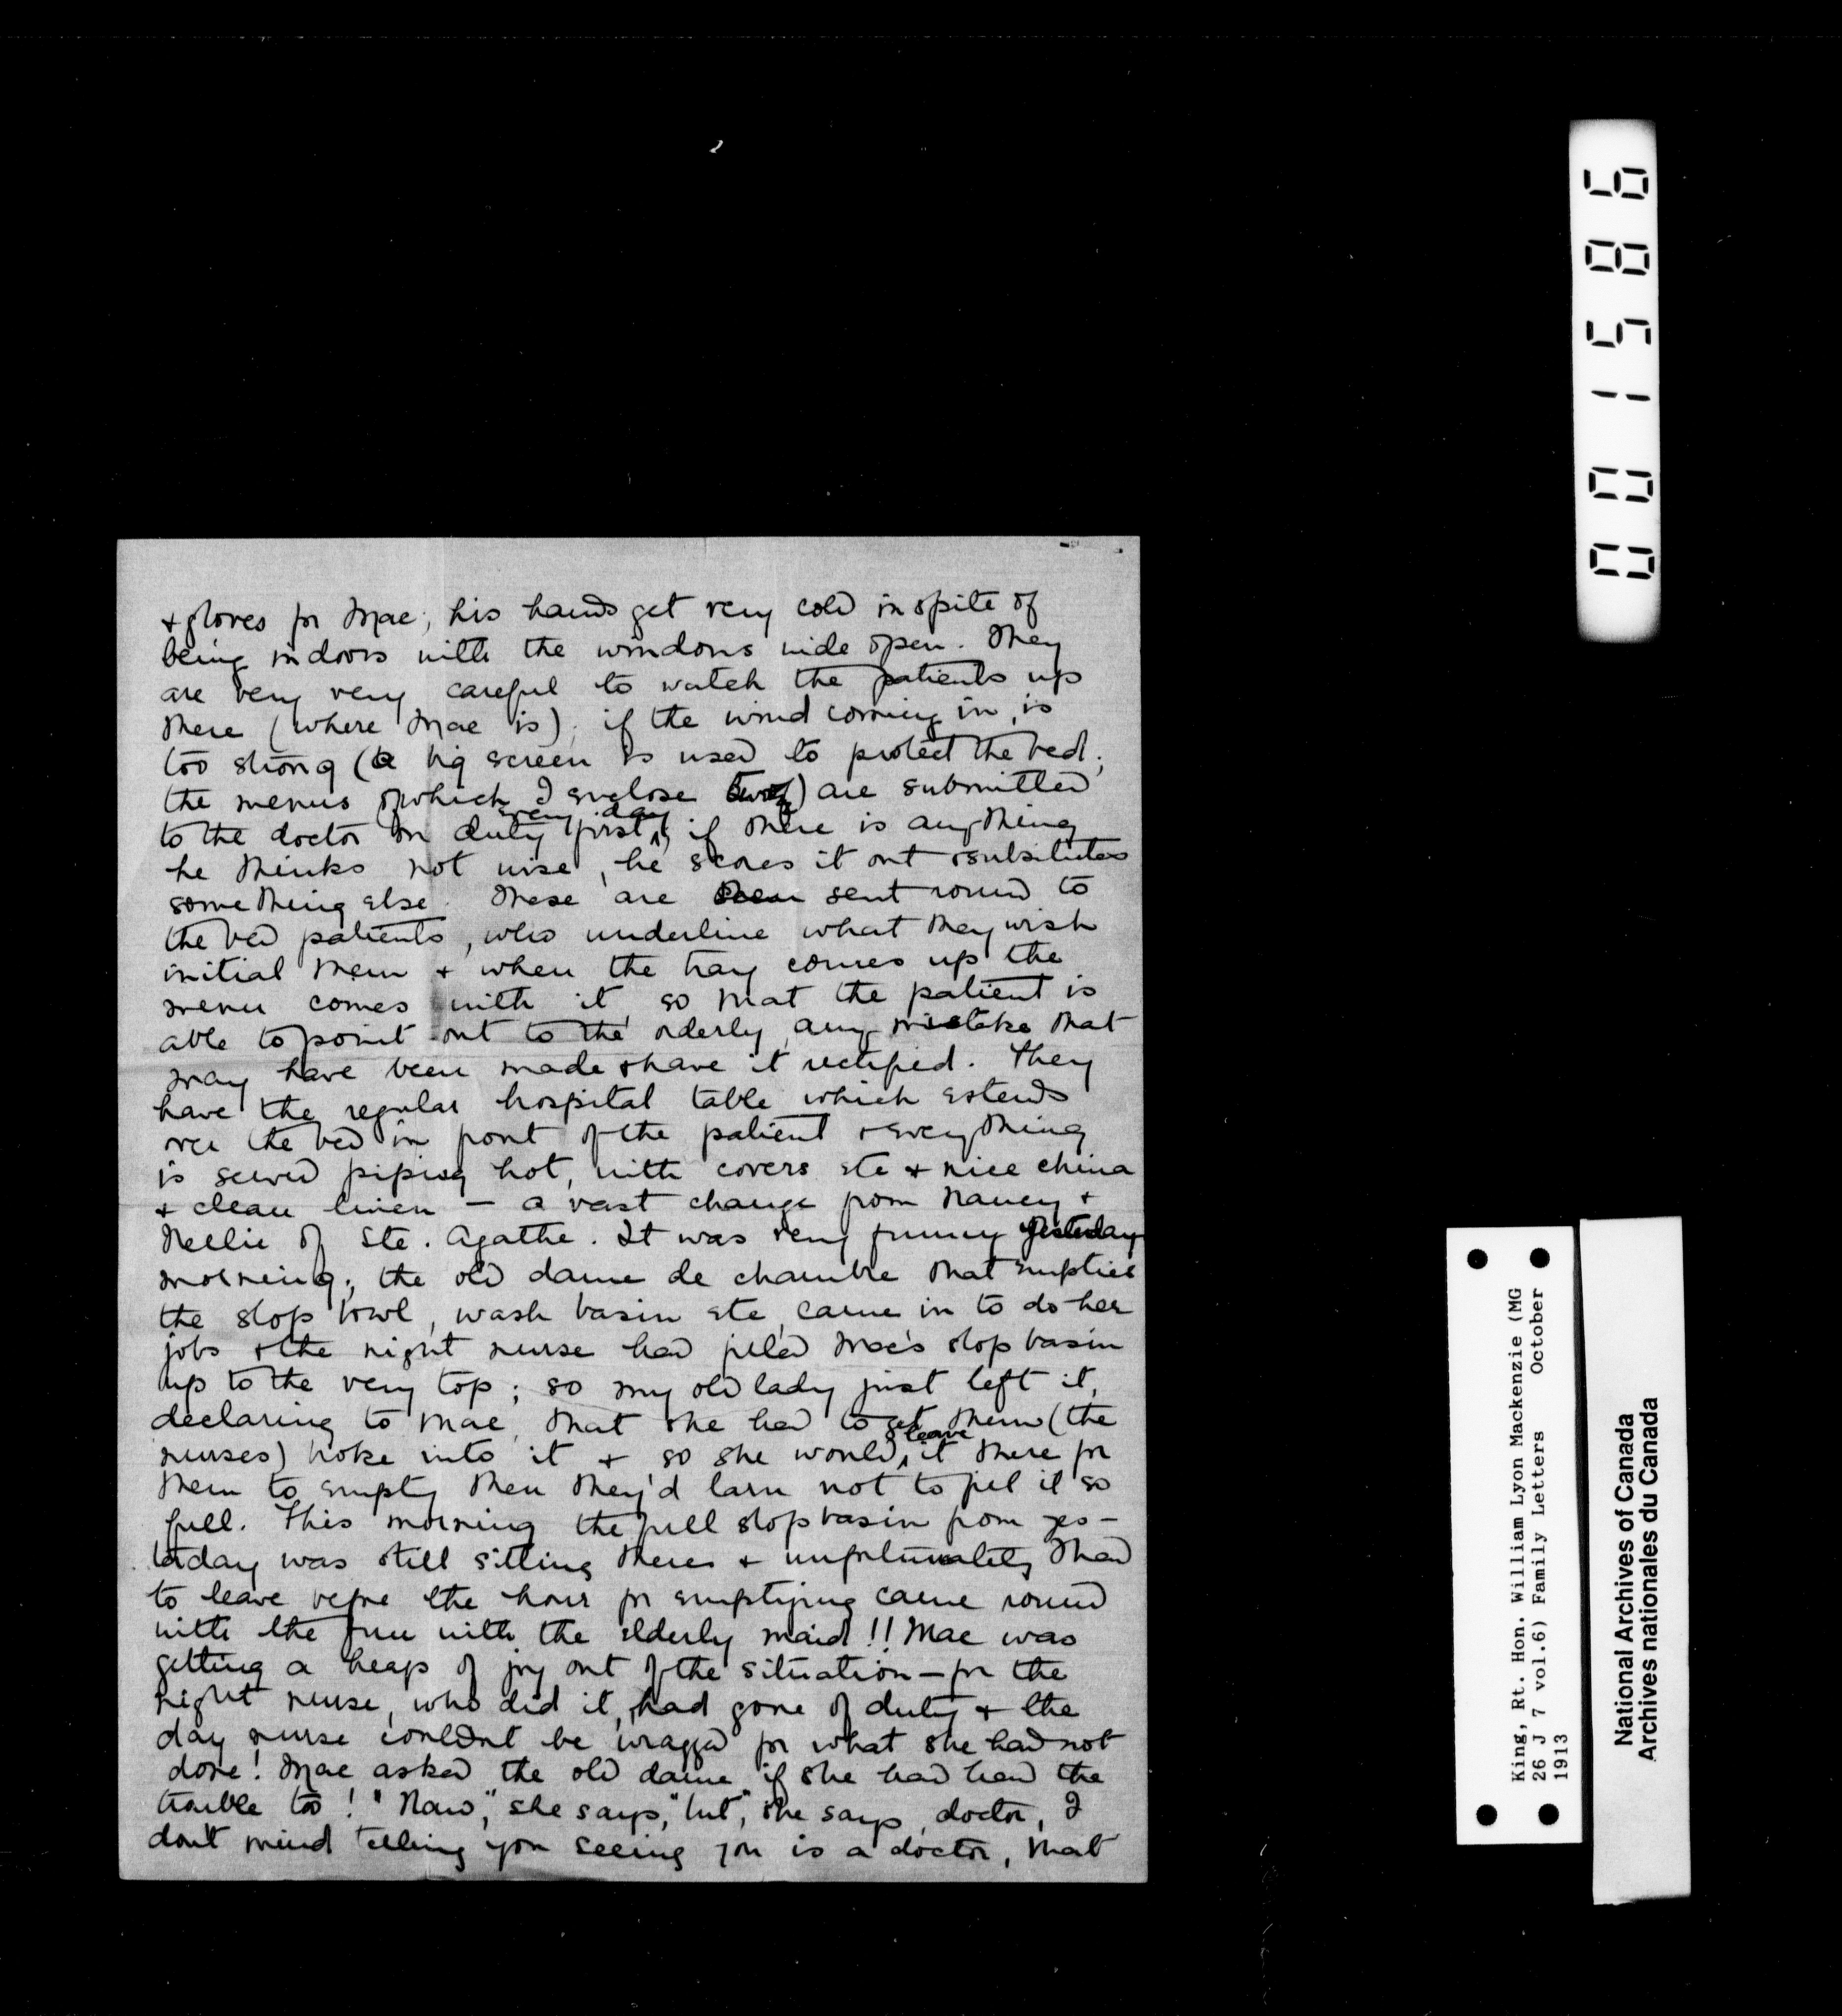 & gloves for Mac; his hands get very cold in spite of
being indoors with the windows wide open. They
are very very careful to watch the patients up
there (where Mac is); if the wind coming in, is
too strong (a big screen is used to protect the bed;
the menus of which I enclose two) are submitted
to the doctor on duty first every day, if there is anything
he thinks not wise, he scores it out & substitutes
something else. These are sent round to
the bed patients, who underline what they wish
initial them & when the tray comes up the
menu comes with it, so that the patient is
able to point out to the orderly, any mistake that
may have been made & have it rectified. They
have the regular hospital table which extends
over the bed in front of the patient & everything
is served piping hot, with covers etc & nice china
& clean linen — a vast change from Nancy &
Nellie of Ste. Agathe. It was very funny yesterday
morning; the old dame de chambre that empties
the slop bowl, wash basin etc, came in to do her
jobs & the night nurse had filled Mac's slop basin
up to the very top; so my old lady just left it,
declaring to Mac, that she had to get them (the
nurses) broke into it & so she would leave it there for
them to empty then they'd larn not to fill it so
full. This morning the full slop basin from yes-
terday was still sitting there & unfortunately I had
to leave before the hour for emptying came round
with the fun with the elderly maid!! Mac was
getting a heap of joy out of the situation — for the
night nurse, who did it, had gone of duty & the
day nurse couldn't be wragged for what she had not
done! Mac asked the old dame if she had had the
trouble too! "Naw," she says, "but," she says, doctor, I
don't mind telling you seeing you is a doctor, that
001586
King, Rt. Hon. William Lyon Mackenzie (MG
26 J 7 vol.6) Family Letters October
1913
National Archives of Canada
Archives nationales du Canada